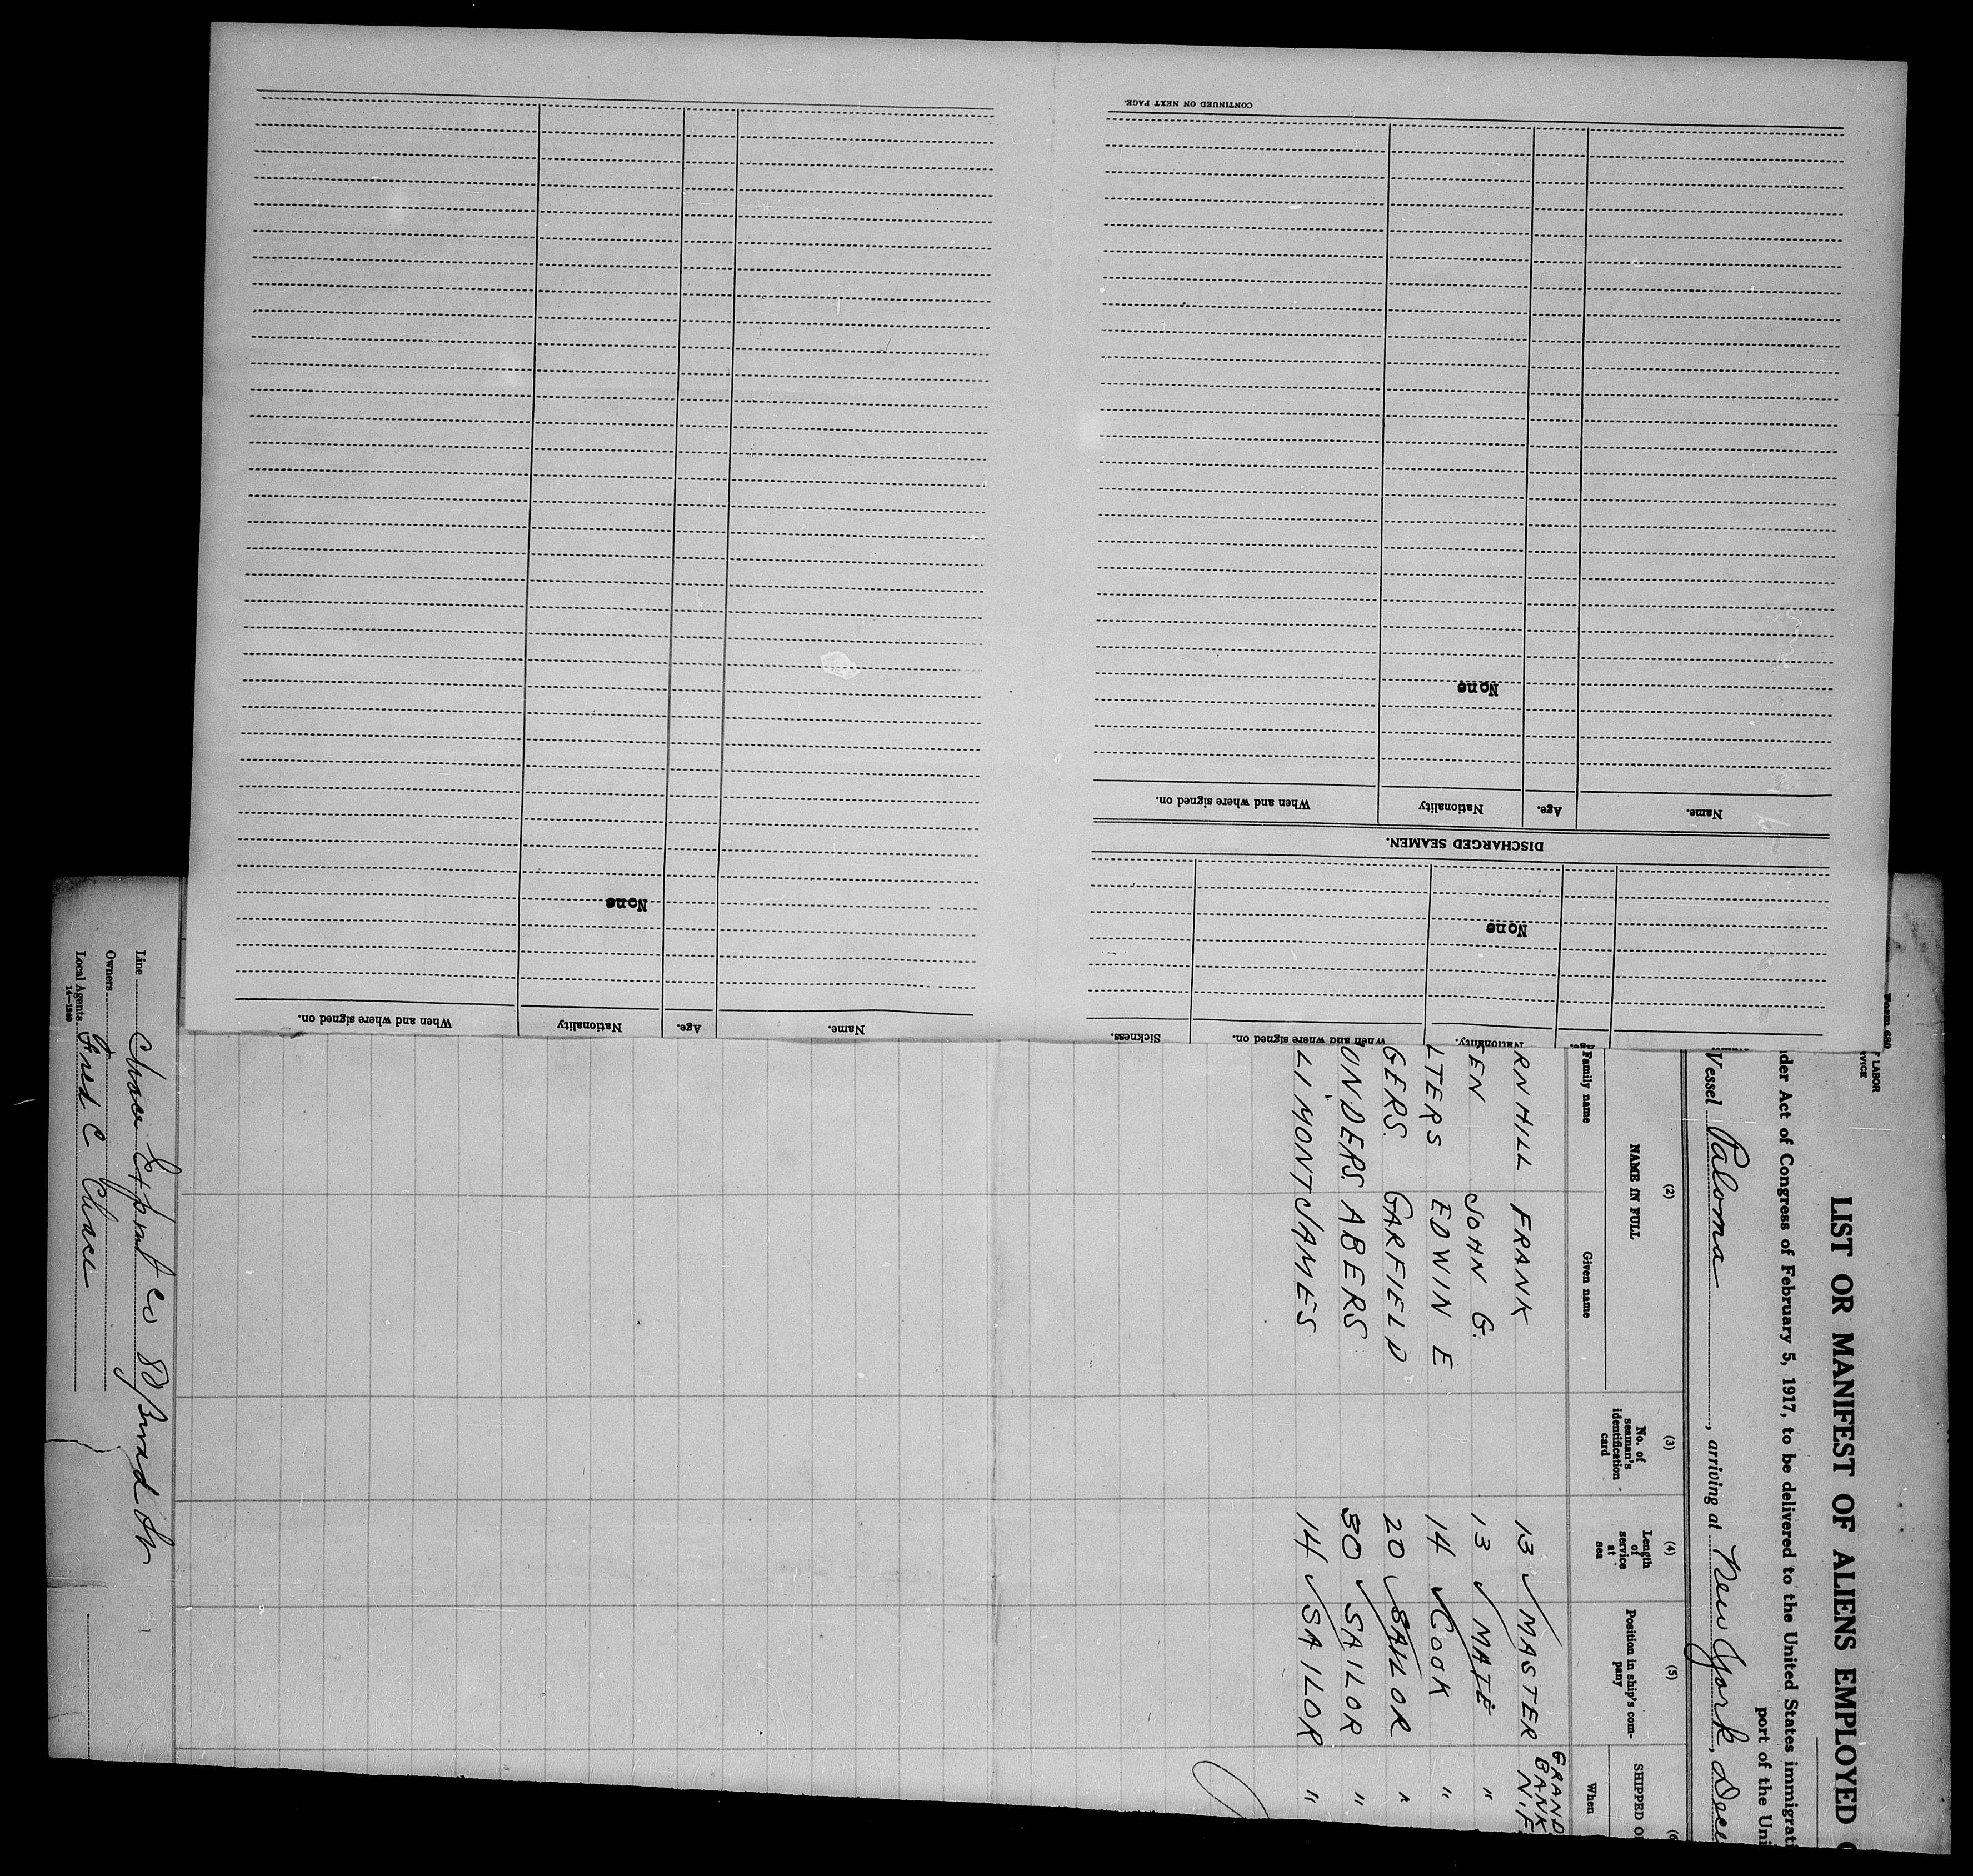 CONTINUED ON NEXT PAGE.
None
Name. Age. Nationality When and where signed on.
DISCHARGED SEAMEN.
None
Nationality. When and where signed on. Sickness.
None
Name. Age. Nationality When and where signed on.
Form 680
F LABOR
VICE
LIST OR MANIFEST OF ALIENS EMPLOYED
der Act of Congress of February 5, 1917, to be delivered to the United States immigrati
port of the Uni
Vessel Paloma, arriving at New York, Dece
(2) (3) (4) (5) (6
NAME IN FULL
Family name Given name
No. of seaman's identification card
Length of service at sea
Position in ship's company
SHIPPED O
When
GRAND
BANK
N.F.
RNHILL FRANK 13 MASTER
EN JOHN G. 13 MATE "
LTERS EDWIN E 14 COOK "
GERS. GARFIELD 20 SAILOR "
UNDERS ABERS 30 SAILOR "
LIMONT JAMES 14 SAILOR "
Line Chace Export Co 80 Broad St
Owners
Local Agents Fred C Chace
14—1240